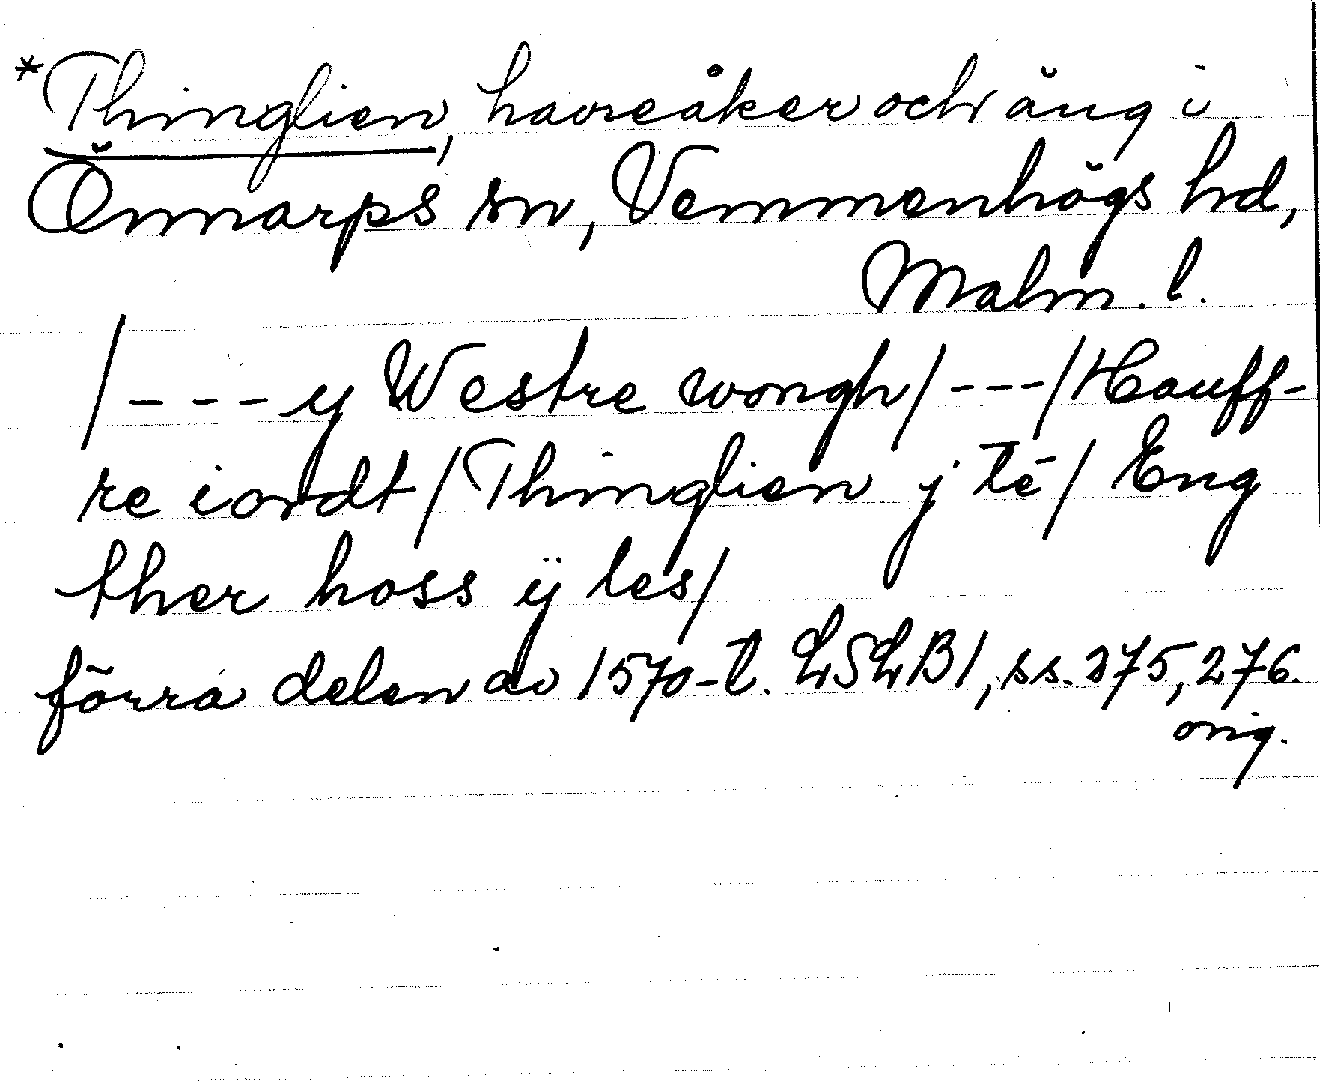 *Thinglien, havreåker och äng i
Önnarps sn, Vemmenhögs hd,
Malm. l.
/---y Westre wongh/---/Hauff-
re iordt/Thinglien j té/Eng
ther hoss ÿ les/
förra delen av 1570-t. LSLB1, ss. 275, 276.
orig.